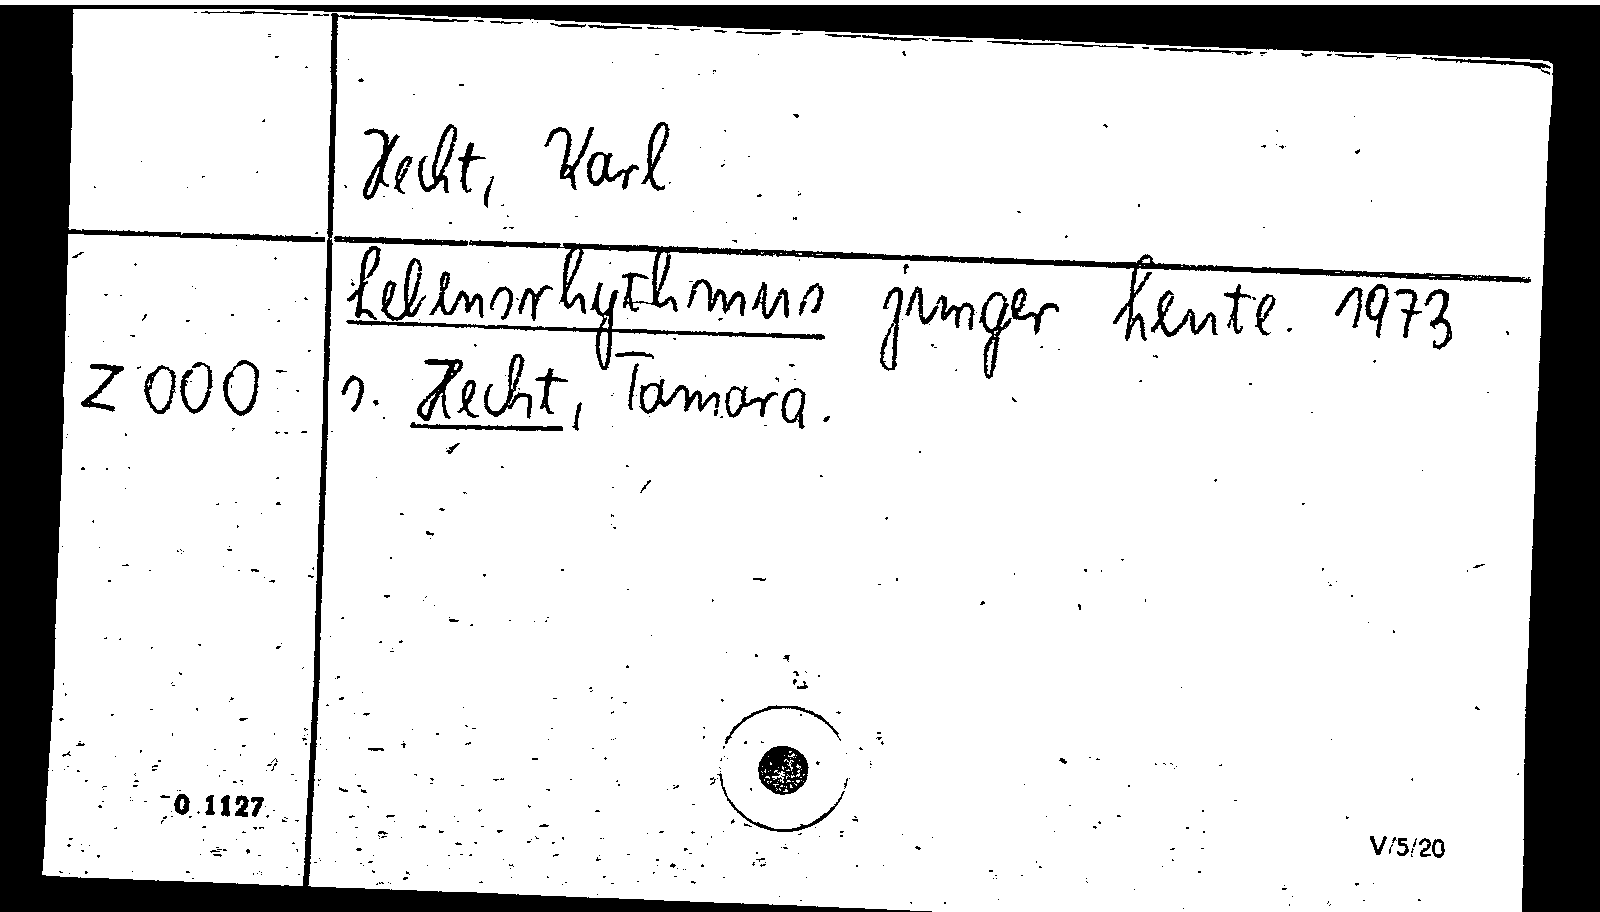 Hecht, Karl
Lebensrhythmus junger Leute. 1973
Z 000 s. Hecht, Tamara.
0 1127
V/5/20